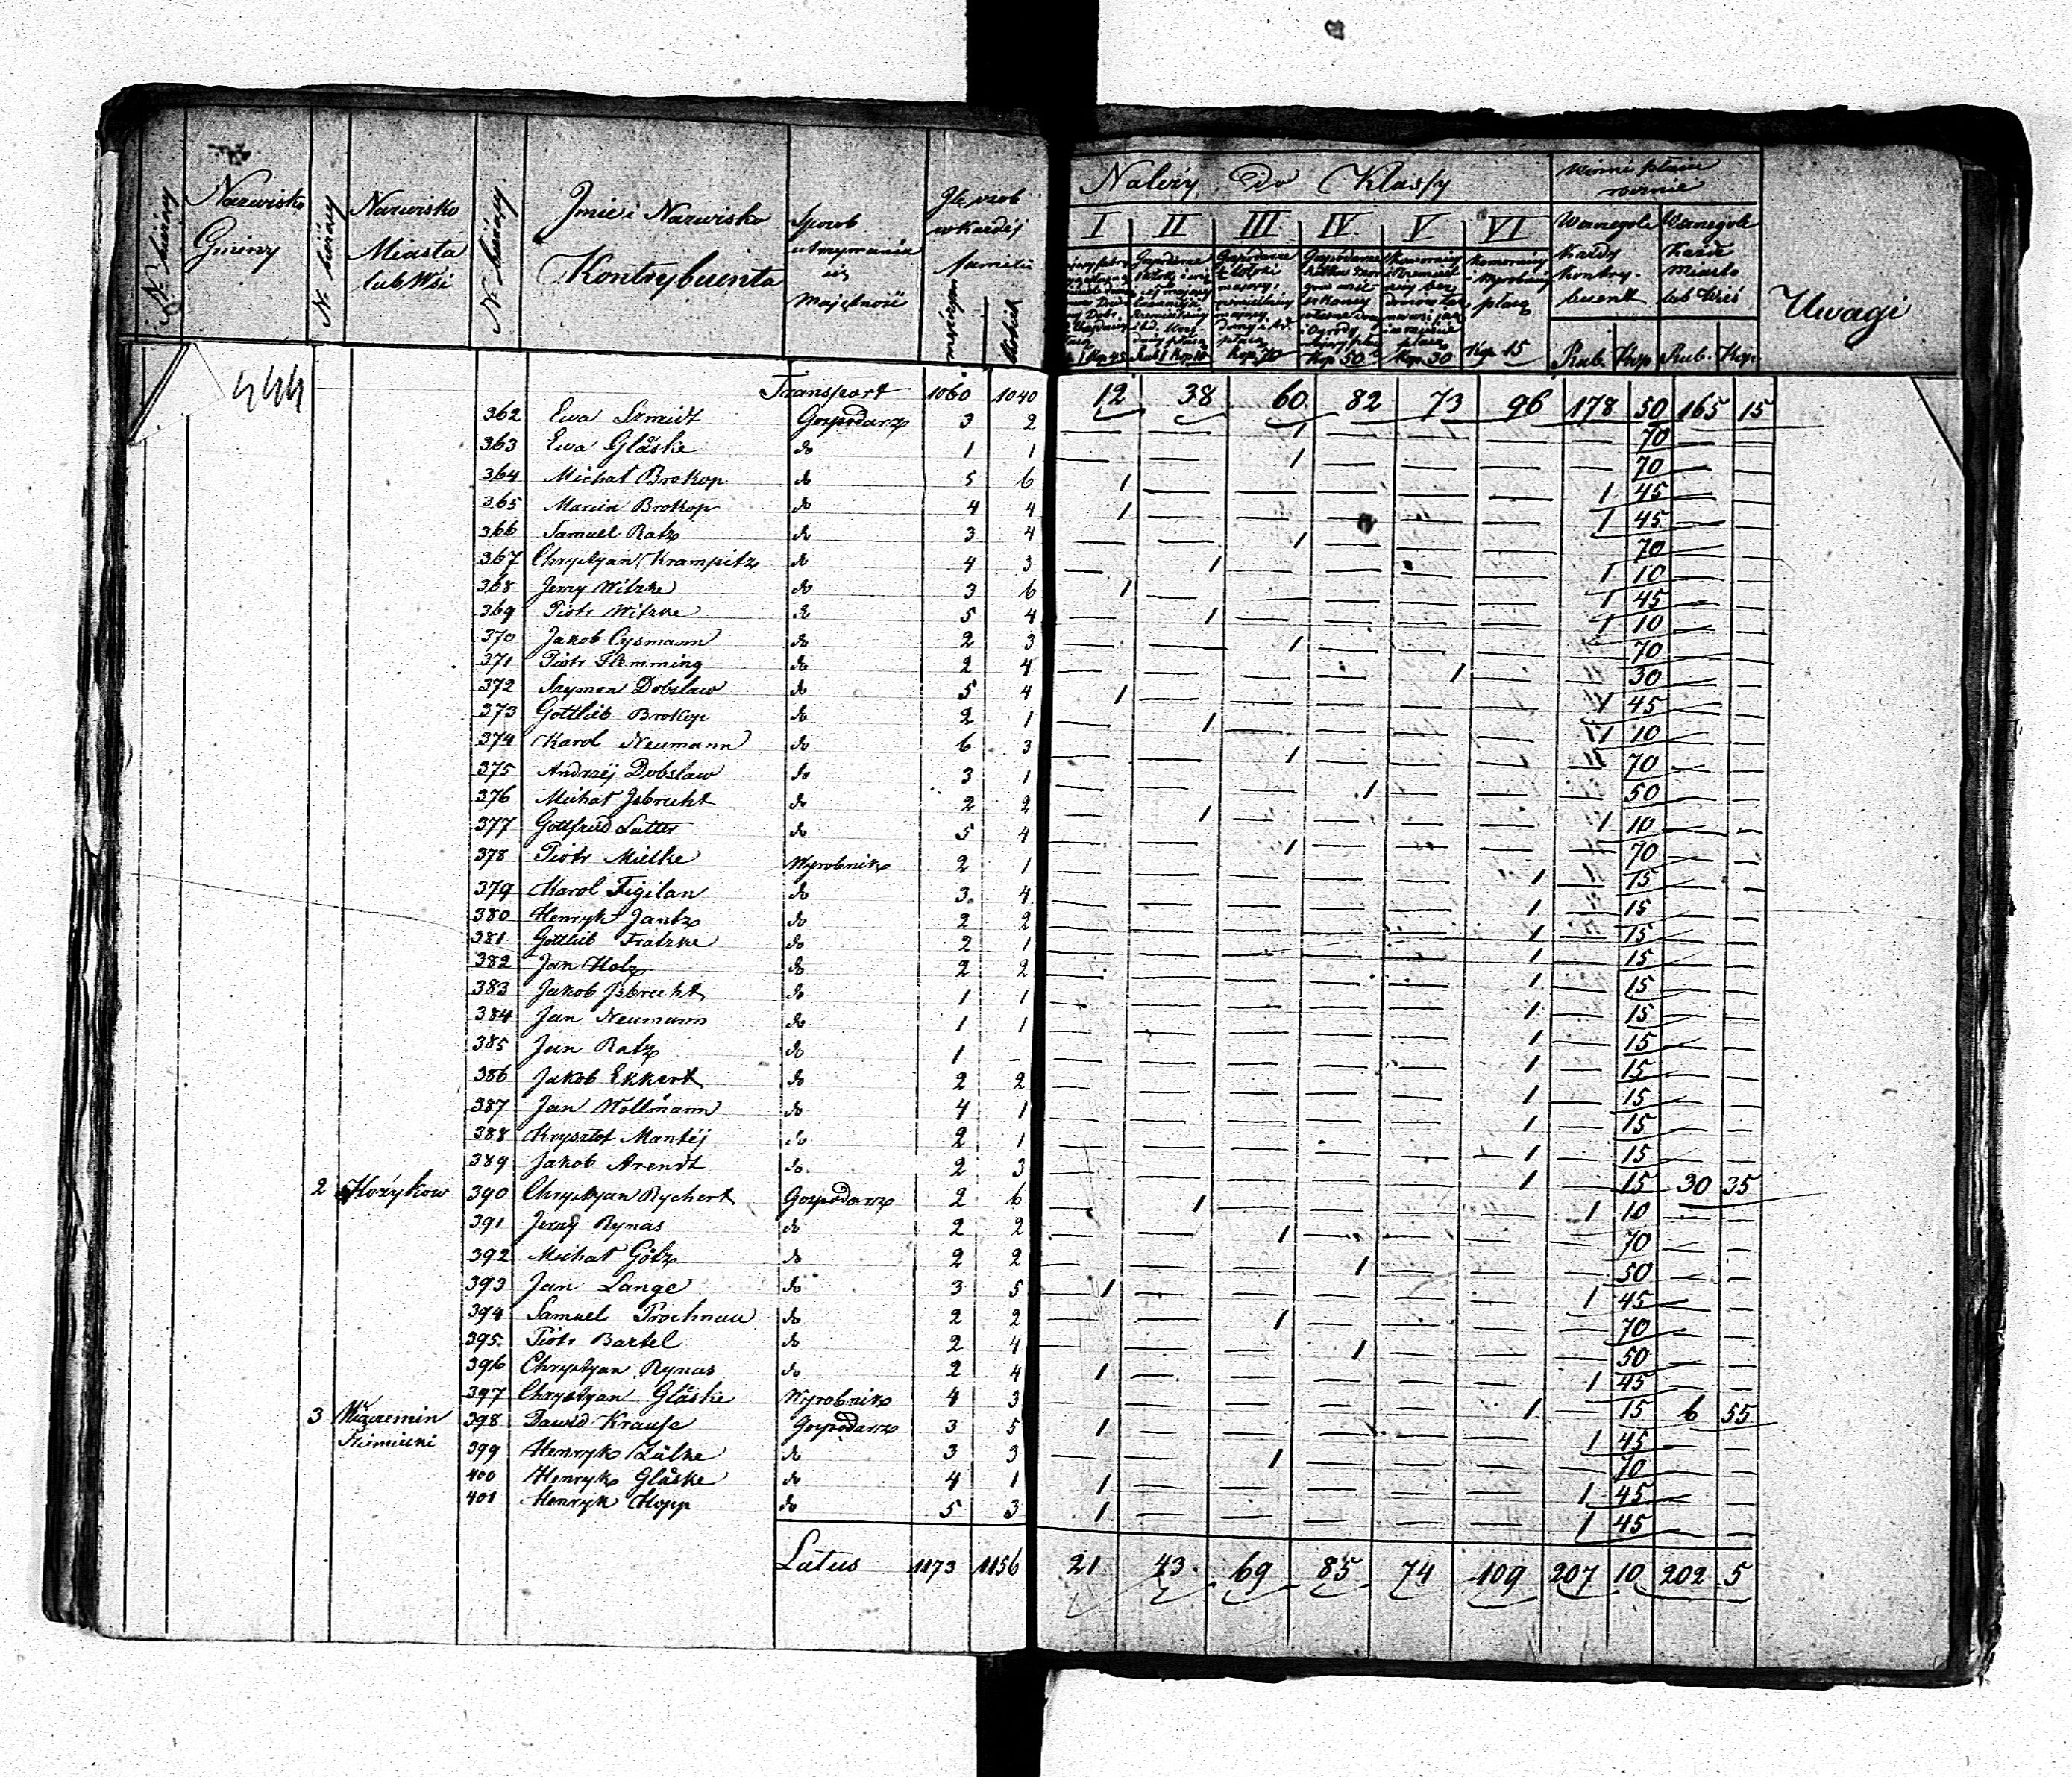 Nr bieżący
Nazwisko Gminy
Nr bieżący
Nazwisko Miasta lub Wsi
Nr bieżący
Jmie i Nazwisko Kontrybuenta
Sposob utrzymania się Majętność
Jle osob w każdéj familii
męskich
Należy do Klassy
I II III IV V VI
Kop 45
Rub 1 Kop 10
Kop. 70
Kop 50
Kop. 30
Kop 15
Winni płacić rocznie
Wszczególe każdy kontrybuent
Wszczególe każde miasto lub Wieś
Rub. Kop Rub. Kop.
Uwagi
444
Transport 1060 1040 12 38 60 82 73 96 178 50 165 15
362 Ewa Szmidt Gospodarz 3 2 — — 1 — — — — 70 — —
363 Ewa Gläske do 1 1 — — 1 — — — — 70 — —
364 Michał Brokop do 5 6 1 — — — — — 1 45 — —
365 Marcin Brokop do 4 4 1 — — — — — 1 45 — —
366 Samuel Ratz do 3 4 — — 1 — — — 70 — —
367 Chrystyan Krampitz do 4 3 — 1 — — — — 1 10 — —
368 Jerzy Witzke do 3 6 1 — — — — — 1 45 — —
369 Piotr Witzke do 5 4 — 1 — — — — 1 10 — —
370 Jakob Cysmann do 2 3 — — 1 — — — — 70 — —
371 Piotr Flemming do 2 4 — — — — 1 — — 30 — —
372 Szymon Dobslaw do 5 4 1 — — — — — 1 45 — —
373 Gottlieb Brokop do 2 1 — 1 — — — — 1 10 — —
374 Karol Neumann do 6 3 — — 1 — — — — 70 — —
375 Andrzéj Dobslaw do 3 1 — — — 1 — — — 50 — —
376 Michał Jsbrecht do 2 2 — 1 — — — — 1 10 — —
377 Gottfried Lutter do 5 4 — — 1 — — — — 70 — —
378 Piotr Mielke Wyrobnik 2 1 — — — — — 1 — 15 — —
379 Karol Figilan do 3 4 — — — — — 1 — 15 — —
380 Henryk Jantz do 2 2 — — — — — 1 — 15 — —
381 Gottlieb Fratzke do 2 1 — — — — — 1 — 15 — —
382 Jan Holz do 2 2 — — — — — 1 — 15 — —
383 Jakob Jsbrecht do 1 1 — — — — — 1 — 15 — —
384 Jan Neumann do 1 1 — — — — — 1 — 15 — —
385 Jan Ratz do 1 — — — — — — 1 — 15 — —
386 Jakob Ekkert do 2 2 — — — — — 1 — 15 — —
387 Jan Wollmann do 4 1 — — — — — 1 — 15 — —
388 Krysztof Mantéj do 2 1 — — — — — 1 — 15 — —
389 Jakob Arendt do 2 3 — — — — — 1 — 15 30 35
2 Kożykow 390 Chrystyan Rychert Gospodarz 2 6 — 1 — — — — 1 10 — —
391 Jerzy Rynas do 2 2 — — 1 — — — — 70 — —
392 Michał Götz do 2 2 — — — 1 — — — 50 — —
393 Jan Lange do 3 5 1 — — — — — 1 45 — —
394 Samuel Prochnau do 2 2 — — 1 — — — — 70 — —
395 Piotr Bartel do 2 4 — — — 1 — — — 50 — —
396 Chrystyan Rynas do 2 4 1 — — — — — 1 45 — —
397 Chrystyan Gläske Wyrobnik 4 3 — — — — — 1 — 15 6 55
3 Wączemin Niemiecki 398 Dawid Krause Gospodarz 3 5 1 — — — — — 1 45 — —
399 Henryk Zülke do 3 3 — — 1 — — — — 70 — —
400 Henryk Gläske do 4 1 1 — — — — — 1 45 — —
401 Henryk Hopp do 5 3 1 — — — — — 1 45 — —
Latus 1173 1156 21 43 69 85 74 109 207 10 202 5